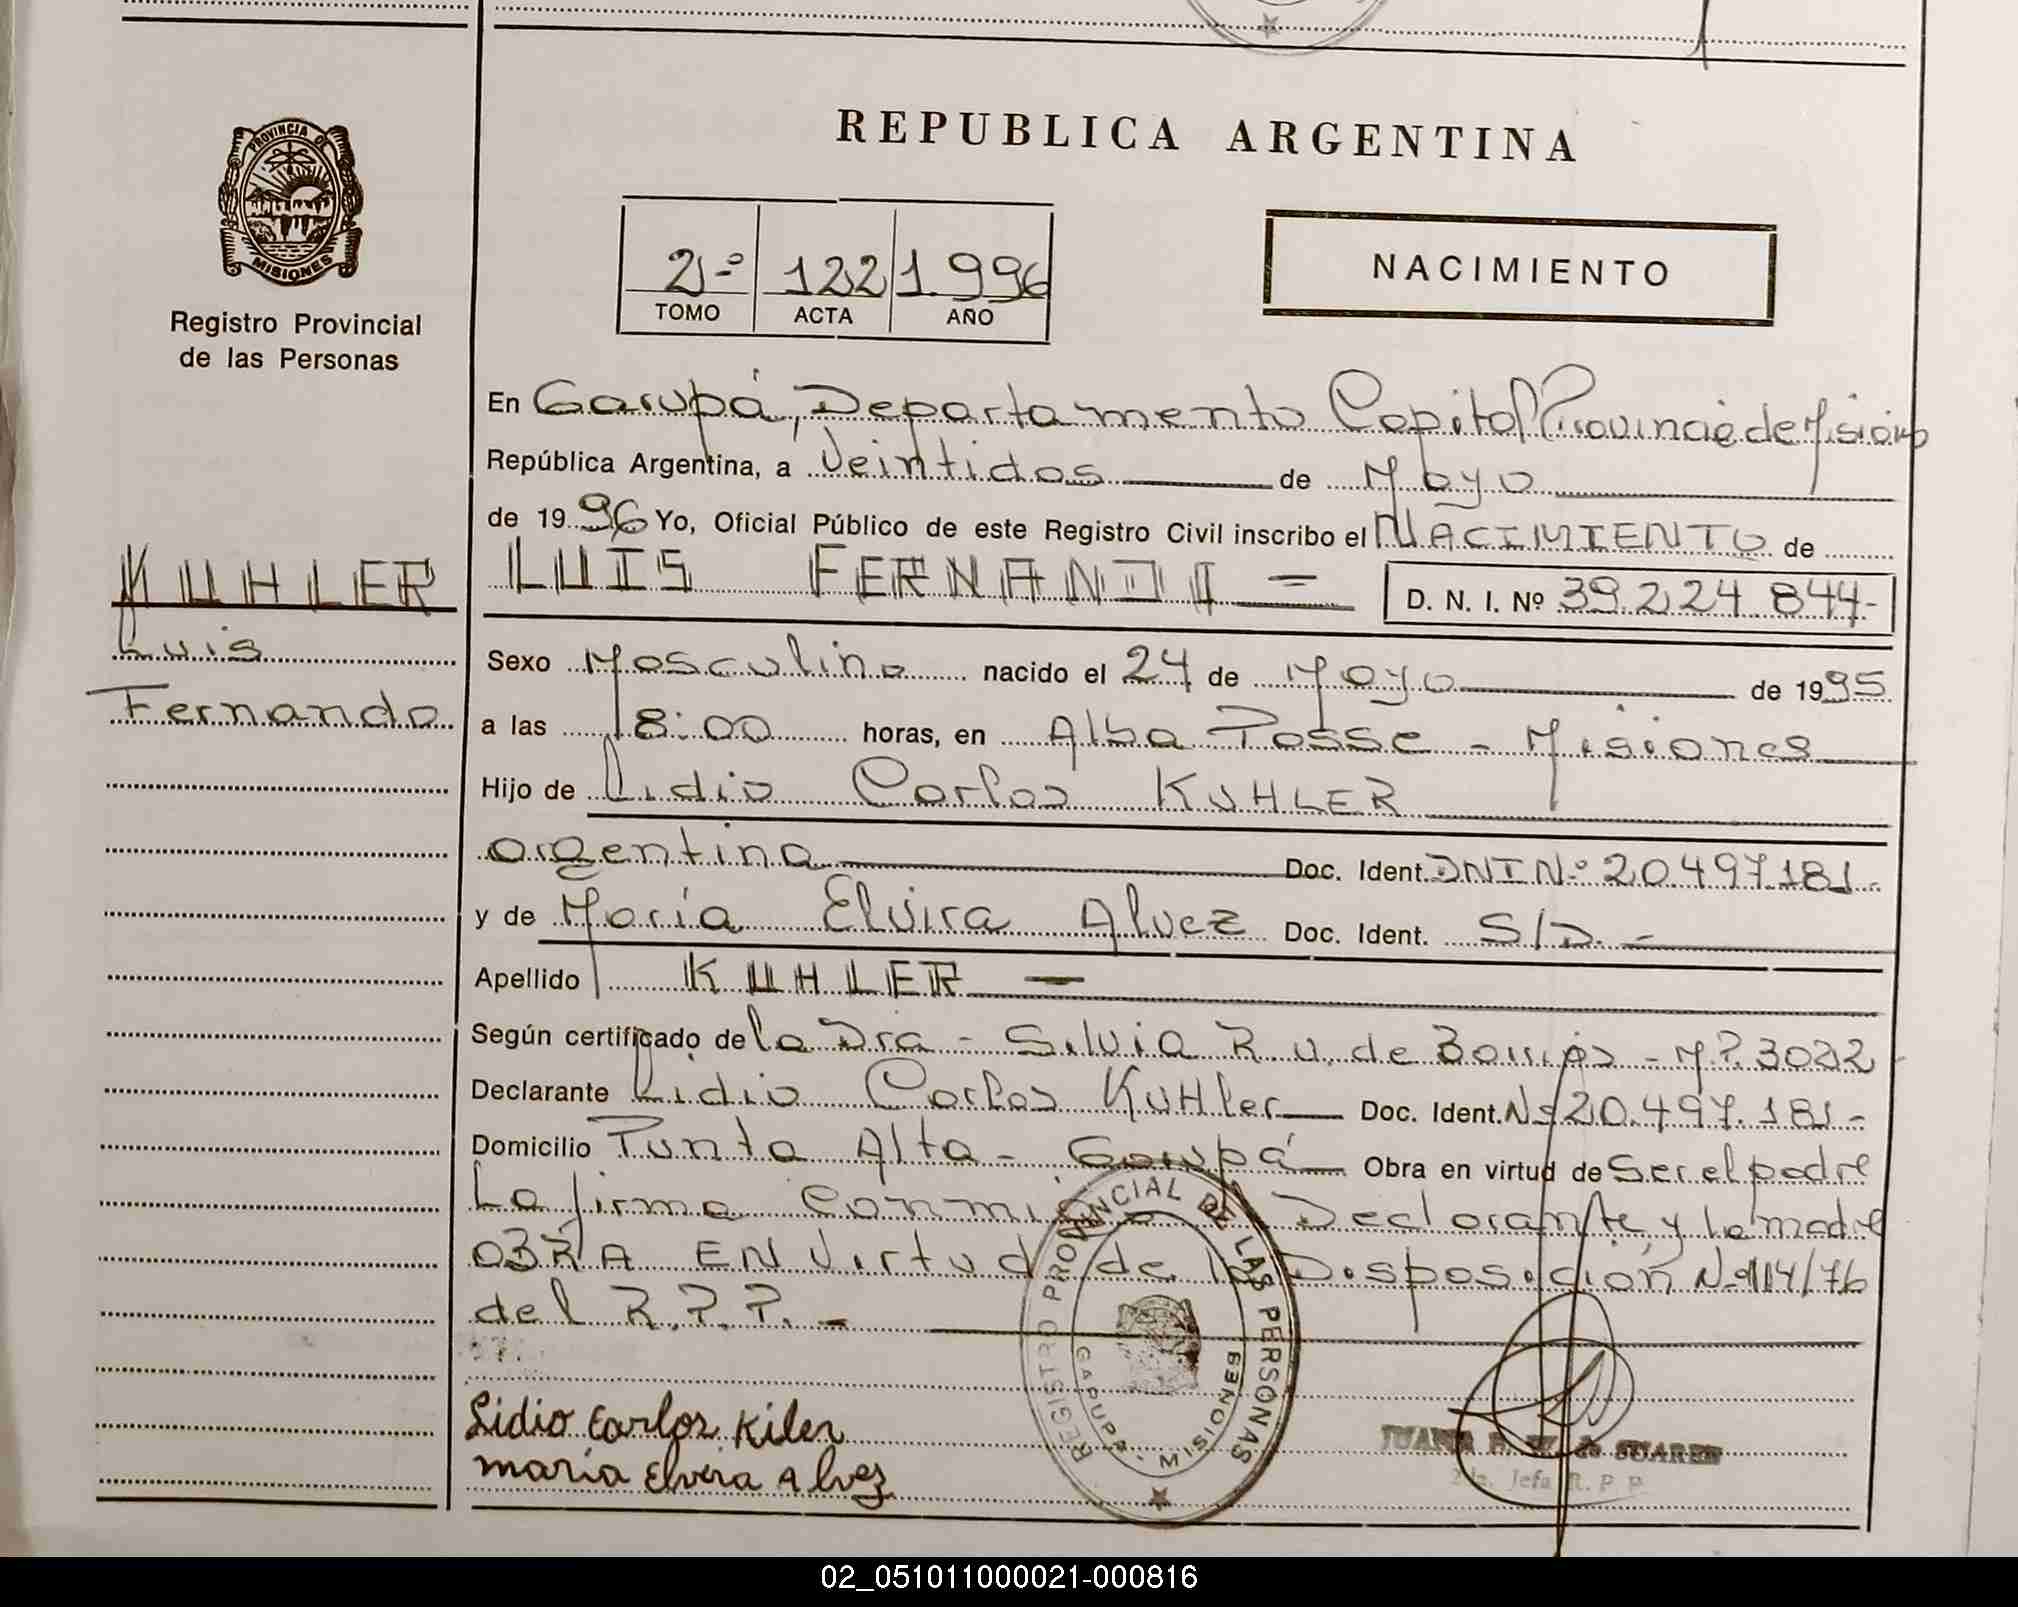 PROVINCIA DE
MISIONES
Registro Provincial
de las Personas
KUHLER
Luis
Fernando
REPUBLICA ARGENTINA
2º 122 1.996
TOMO ACTA AÑO
NACIMIENTO
En Garupá, Departamento Capital Provincia de Misiones
República Argentina, a Veintidos de Mayo
de 1996 Yo, Oficial Público de este Registro Civil inscribo el NACIMIENTO de
LUIS FERNANDO = D. N. I. Nº 39.224.844-
Sexo Masculino nacido el 24 de Mayo de 1995
a las 18:00 horas, en Alba Posse - Misiones
Hijo de Lidio Carlos KUHLER
argentina Doc. Ident. DNI Nº 20.497.181-
y de María Elvira Alvez Doc. Ident. S/D. -
Apellido KUHLER -
Según certificado de la Dra - Silvia R. V. de Barrios - M.P. 3022
Declarante Lidio Carlos KuHler Doc. Ident. Nº 20.497.181-
Domicilio Punta Alta - Garupá Obra en virtud de Ser el padre
La firma conmigo Declarante y la madre
OBRA EN Virtud de la Disposición Nº 114/76
del R.P.P. -
Lidio Carlos Kiler
maría Elvira Alvez
REGISTRO PROVINCIAL DE LAS PERSONAS
GARUPA - MISIONES
DE SUAREZ
Jefa R. P. P.
02_051011000021-000816